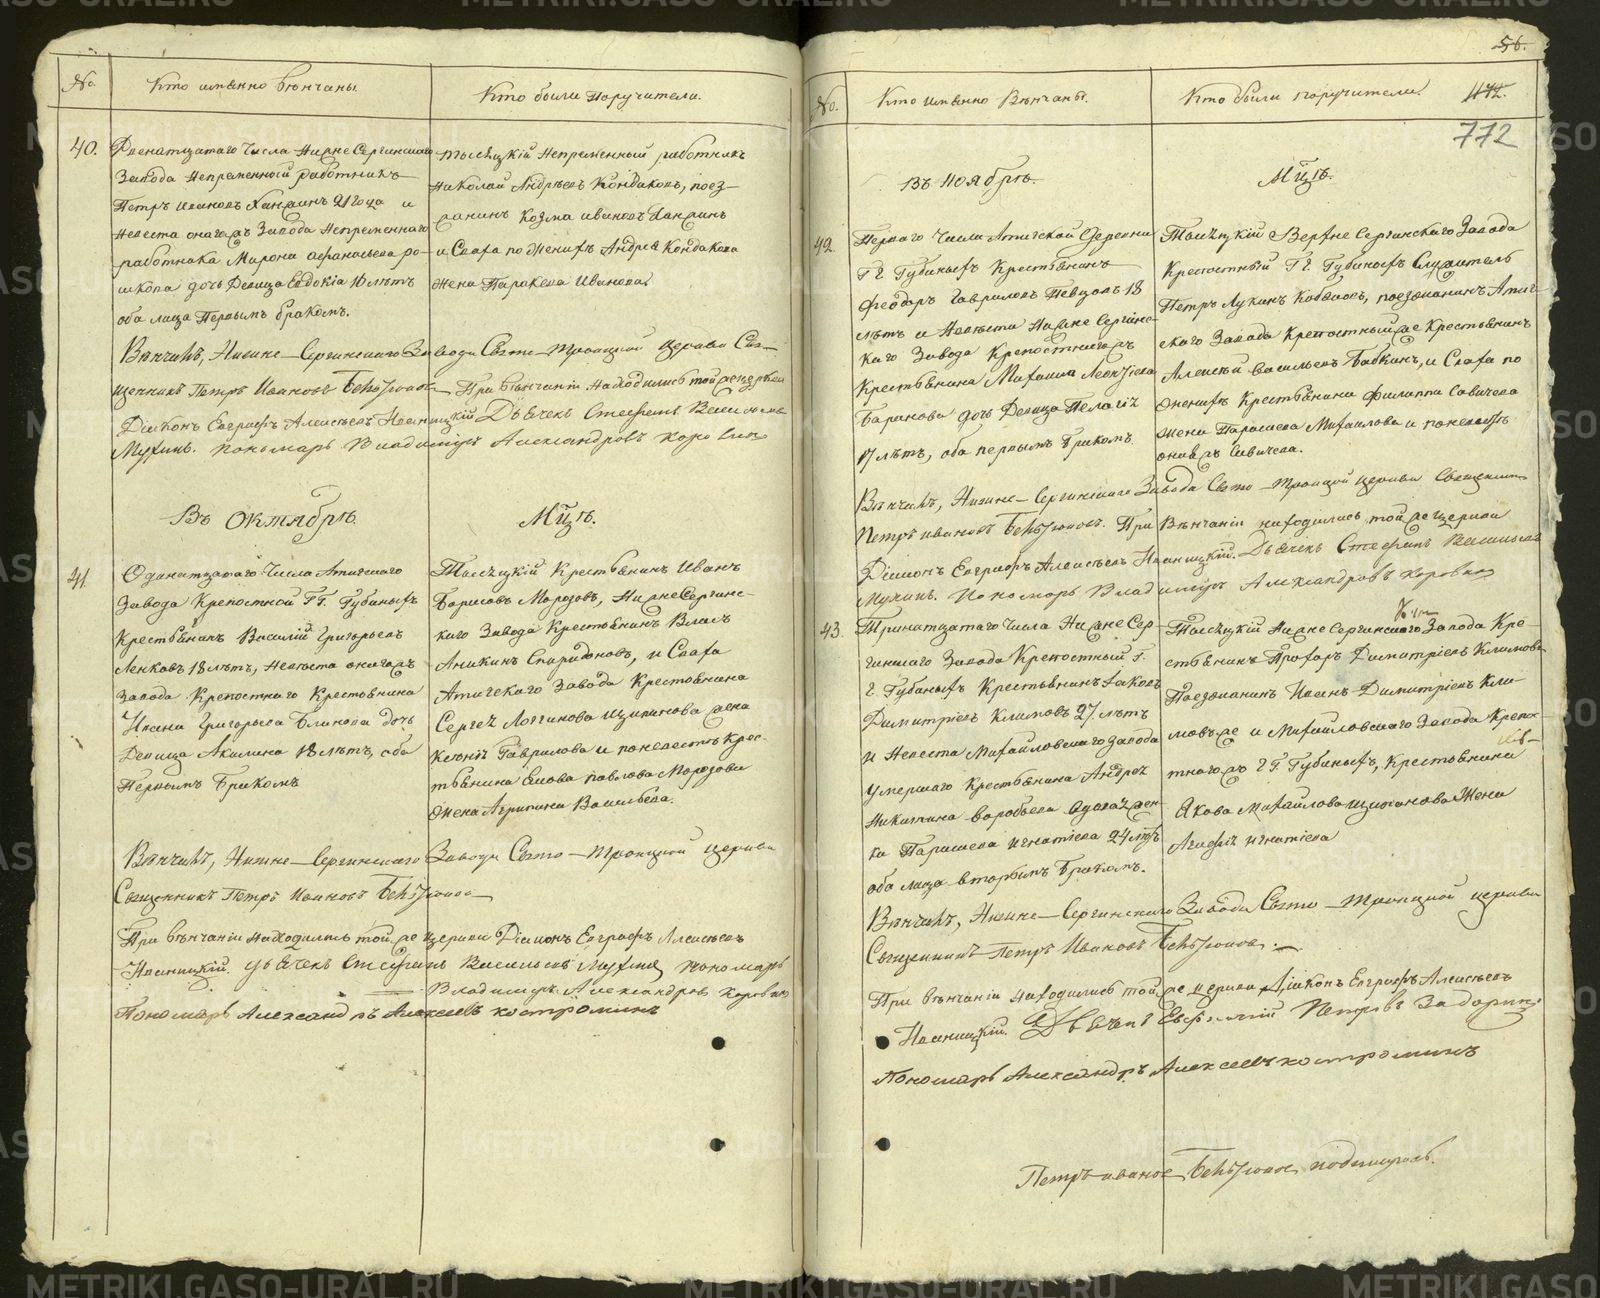 56.
No.
Кто именно Вѣнчаны.
Кто были Поручители.
40.
Двенатцатаго Числа Нижне Сергинскаго
Завода Непременный работникъ
Петръ Ивановъ 21 года и
Невеста онагожъ Завода Непременнаго
работника Мирона Афанасьева
дочь Девица Евдокія лѣтъ
оба лица Первымъ бракомъ.
Тысецкій Непременный работникъ
Николай Андрѣевъ Кондаковъ, поез-
жанинъ Козма Ивановъ
и Сваха по Женихѣ Андрея Кондакова
жена Параскева Иванова
Вѣнчалъ, Нижне-Сергинскаго Завода Свято-Троицкой церкви Свя-
щенникъ Петръ Ивановъ При вѣнчаніи находились той же церкви
Діаконъ Евграфъ Алексѣевъ Дьячекъ Стефанъ Васильевъ
Мухинъ. пономарь Владимиръ Александровъ Коровинъ
Въ Октябрѣ.
Мцѣ.
41.
Одинатцатаго Числа Атигскаго
Завода Крепостной ГГ. Губиныхъ
Крестьянинъ Василій Григорьевъ
18 лѣтъ, Невѣста онагожъ
Завода Крепостнаго Крестьянина
Ивана Григорьева Блинова дочь
Девица Акилина 18 лѣтъ, оба
Первымъ Бракомъ
Тысецкій Крестьянинъ Иванъ
Борисовъ Морозовъ, Нижне Сергинс-
каго Завода Крестьянинъ Власъ
Аникинъ Спиридоновъ, и Сваха
Атигскаго Завода Крестьянина
Сергея Логгинова жена
Гаврилова и по невестѣ Крес-
тьянина Павлова Морозова
жена Агрипина Васильева.
Вѣнчалъ, Нижне-Сергинскаго Завода Свято-Троицкой церкви
Священникъ Петръ Ивановъ
При вѣнчаніи находились той же церкви Діаконъ Евграфъ Алексѣевъ
дьячекъ Стефанъ Васильевъ Мухинъ пономарь
Владимиръ Александровъ Коровинъ
Пономарь Александръ Алексеевъ Костроминъ
No.
Кто именно Вѣнчаны.
Кто были поручители.
772
Въ Ноябрѣ.
Мцѣ.
42.
Перваго Числа Атигской Деревни
ГГ. Губиныхъ Крестьянинъ
Феодоръ Гавриловъ Певцовъ 18
лѣтъ и Невѣста Нижне Сергинс-
каго Завода Крепостнагожъ
Крестьянина Михаила Леонтіева
Баранова дочь Девица Пелагія
17 лѣтъ, оба первымъ бракомъ
Тысецкій Верхне Сергинскаго Завода
Крепостный ГГ. Губиныхъ Служитель
Петръ Лукинъ поезжанинъ Атиг-
скаго Завода Крепостный же Крестьянинъ
Алексѣй Васильевъ Бабкинъ, и Сваха по
женихѣ Крестьянина Филиппа Савичева
жена Парасьева Михаилова и по невѣстѣ
онажъ Савичева.
Вѣнчалъ, Нижне-Сергинскаго Завода Свято-Троицкой церкви Священникъ
Петръ Ивановъ При Вѣнчаніи находились той же церкви
Діаконъ Евграфъ Алексѣевъ Дьячекъ Стефанъ Васильевъ
Мухинъ. Пономарь Владимиръ Александровъ Коровинъ
43.
Тринатцатаго Числа Нижне Сер-
гинскаго Завода Крепостный Г.
Г. Губиныхъ Крестьянинъ Іаковъ
Димитріевъ Климовъ 27 лѣтъ
и Невеста Михайловскаго Завода
умершаго Крестьянина Андрея
Никитина Воробьева вдова жен-
ка Парасьева Игнатіева 24 лѣтъ
оба лица вторымъ Бракомъ.
Тысецкій Нижне Сергинскаго Завода Кре-
стьянинъ Прохоръ Димитріевъ Климовъ
Поезжанинъ Иванъ Димитріевъ Кли-
мовъ же и Михайловскаго Завода Крепо-
стнагожъ ГГ. Губиныхъ, Крестьянина
Якова Михайлова жена
Агафья Игнатіева
Вѣнчалъ, Нижне-Сергинскаго Завода Свято-Троицкой церкви
Священникъ Петръ Ивановъ
При вѣнчаніи находились той же церкви Діаконъ Евграфъ Алексѣевъ
Дьячекъ Петровъ
Пономарь Александръ Алексеевъ Костроминъ
Петръ Ивановъ подписуюсь.
METRIKI.GASO-URAL.RU